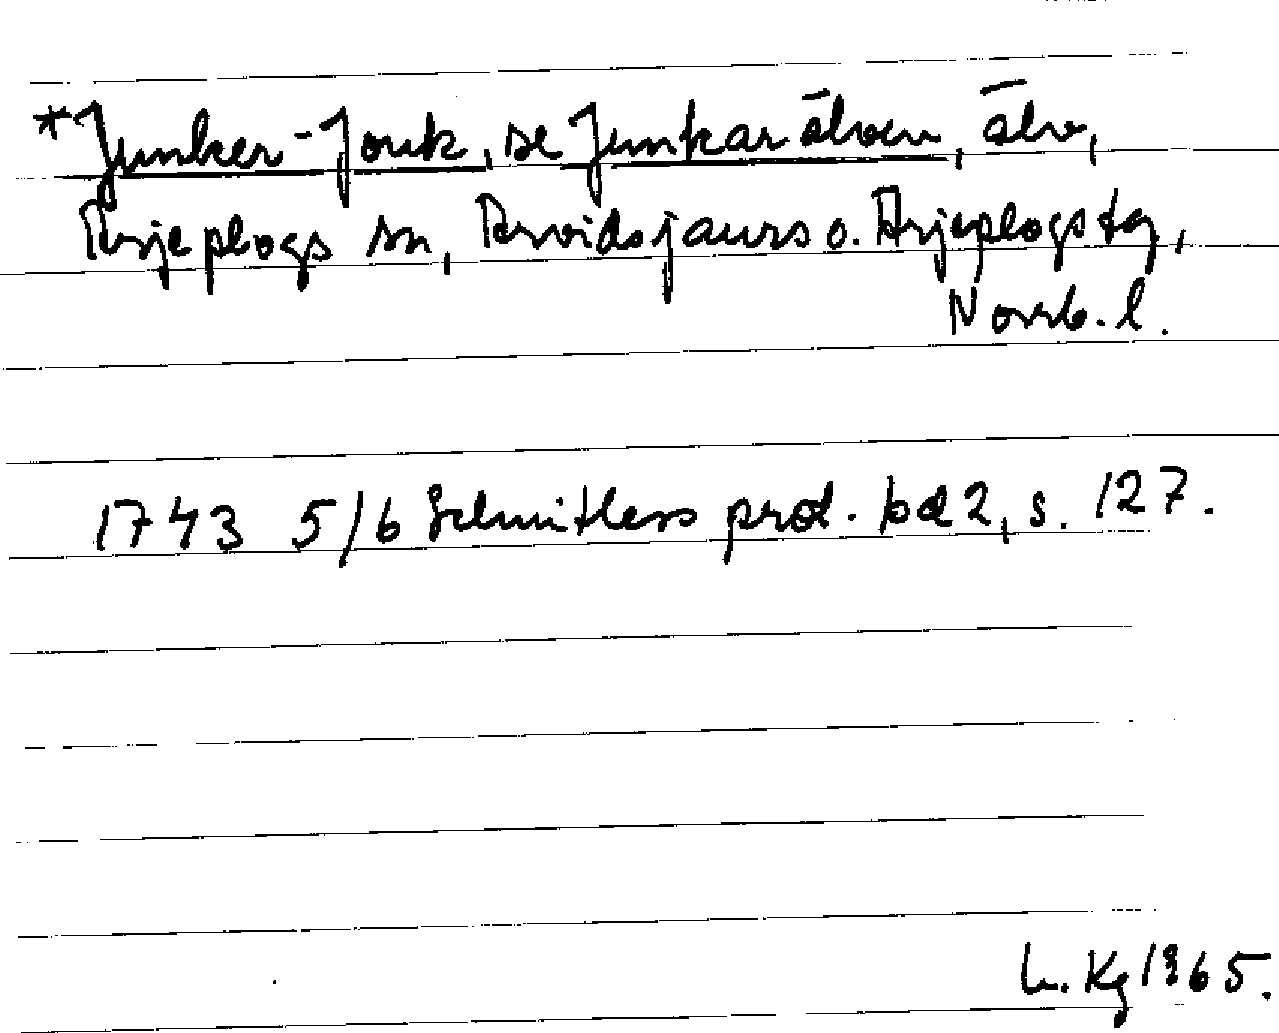 *Junker-Jouk, se Junkarälven, älv,
Arjeplogs sn, Arvidsjaurs o. Arjeplogs tg,
Norrb. l.
1743 5/6 Schnitlers prot. bd 2, s. 127.
L. Kg 1965.